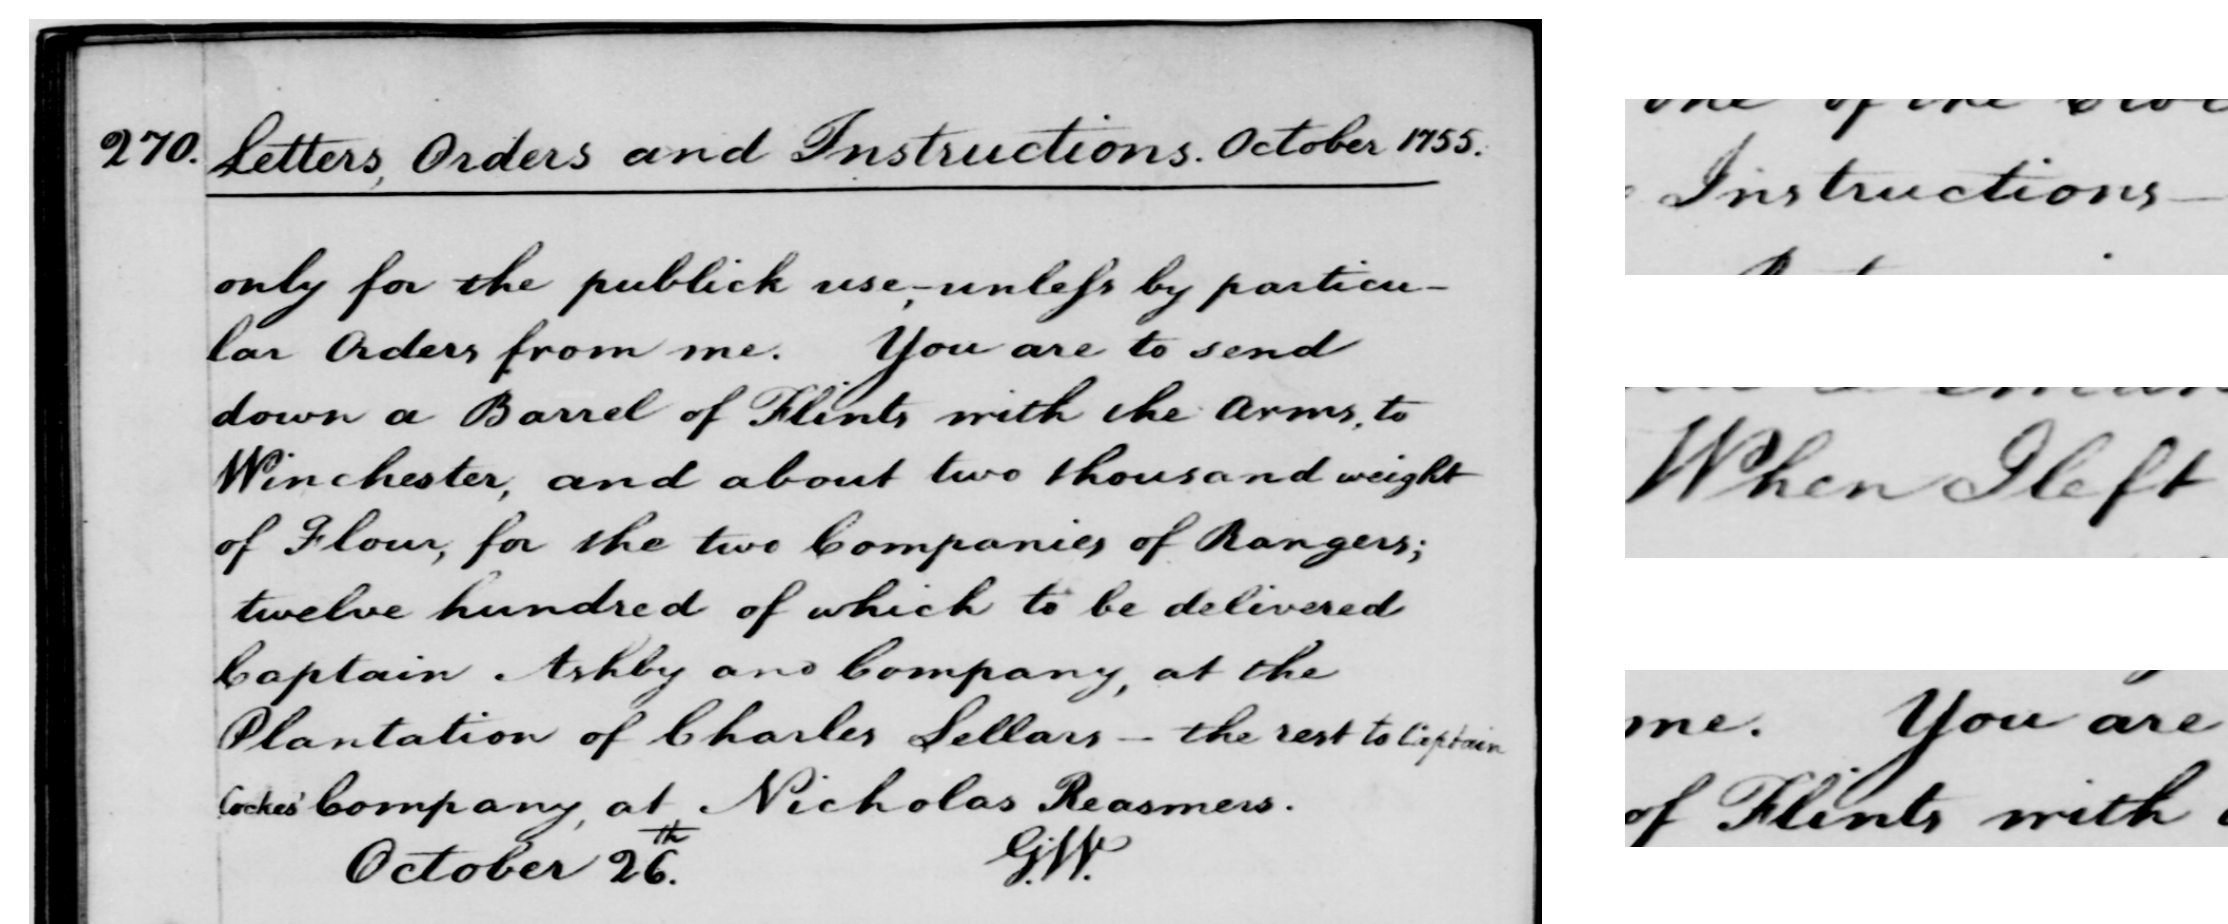 270. Letters, Orders and Instructions. October 1755.
only for the publick use,-unless by particu-
lar Orders from me. You are to send
down a Barrel of Flints with the Arms, to
Winchester, and about two thousand weight
of Flour, for the two Companies of Rangers;
twelve hundred of which to be delivered
Captain Ashby and Company, at the
Plantation of Charles Sellars - the rest to Captain
Cockes' Company, at Nicholas Reasmers.
October 26.th G.W.
Instructions-
When I left
me. You are
of Flints with